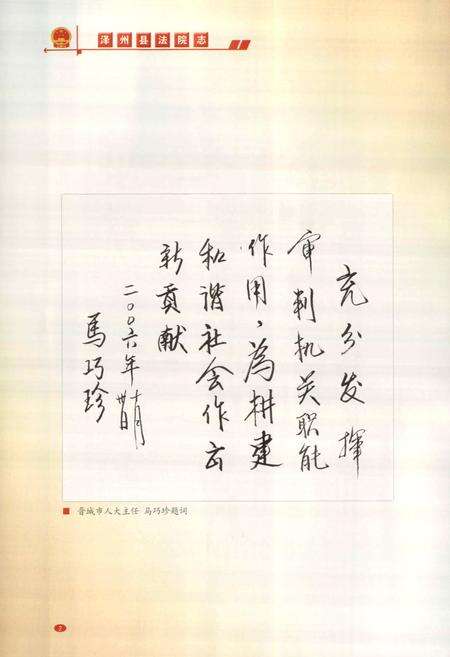 泽州县法院志
充分发挥
审判机关职能
作用，為構建
和谐社会作出
新貢献
二〇〇六年
馬巧珍
晋城市人大主任 马巧珍题词